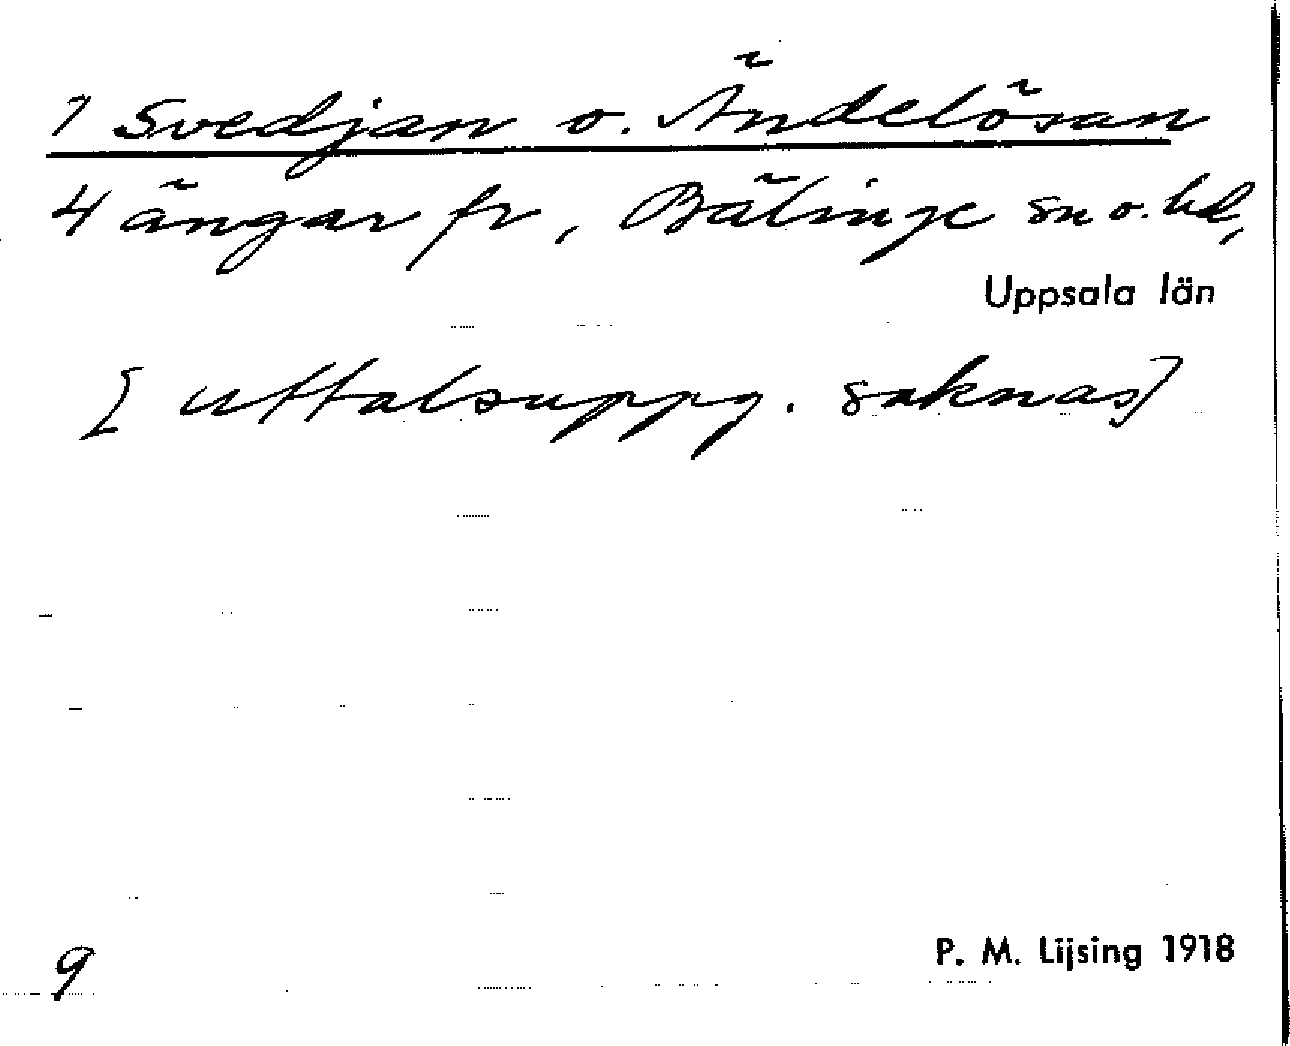 1 Svedjan o. Ändelösan
4 ängar fr, Bälinge sn o. hd,
Uppsala län
[uttalsuppg. saknas]
9
P. M. Lijsing 1918